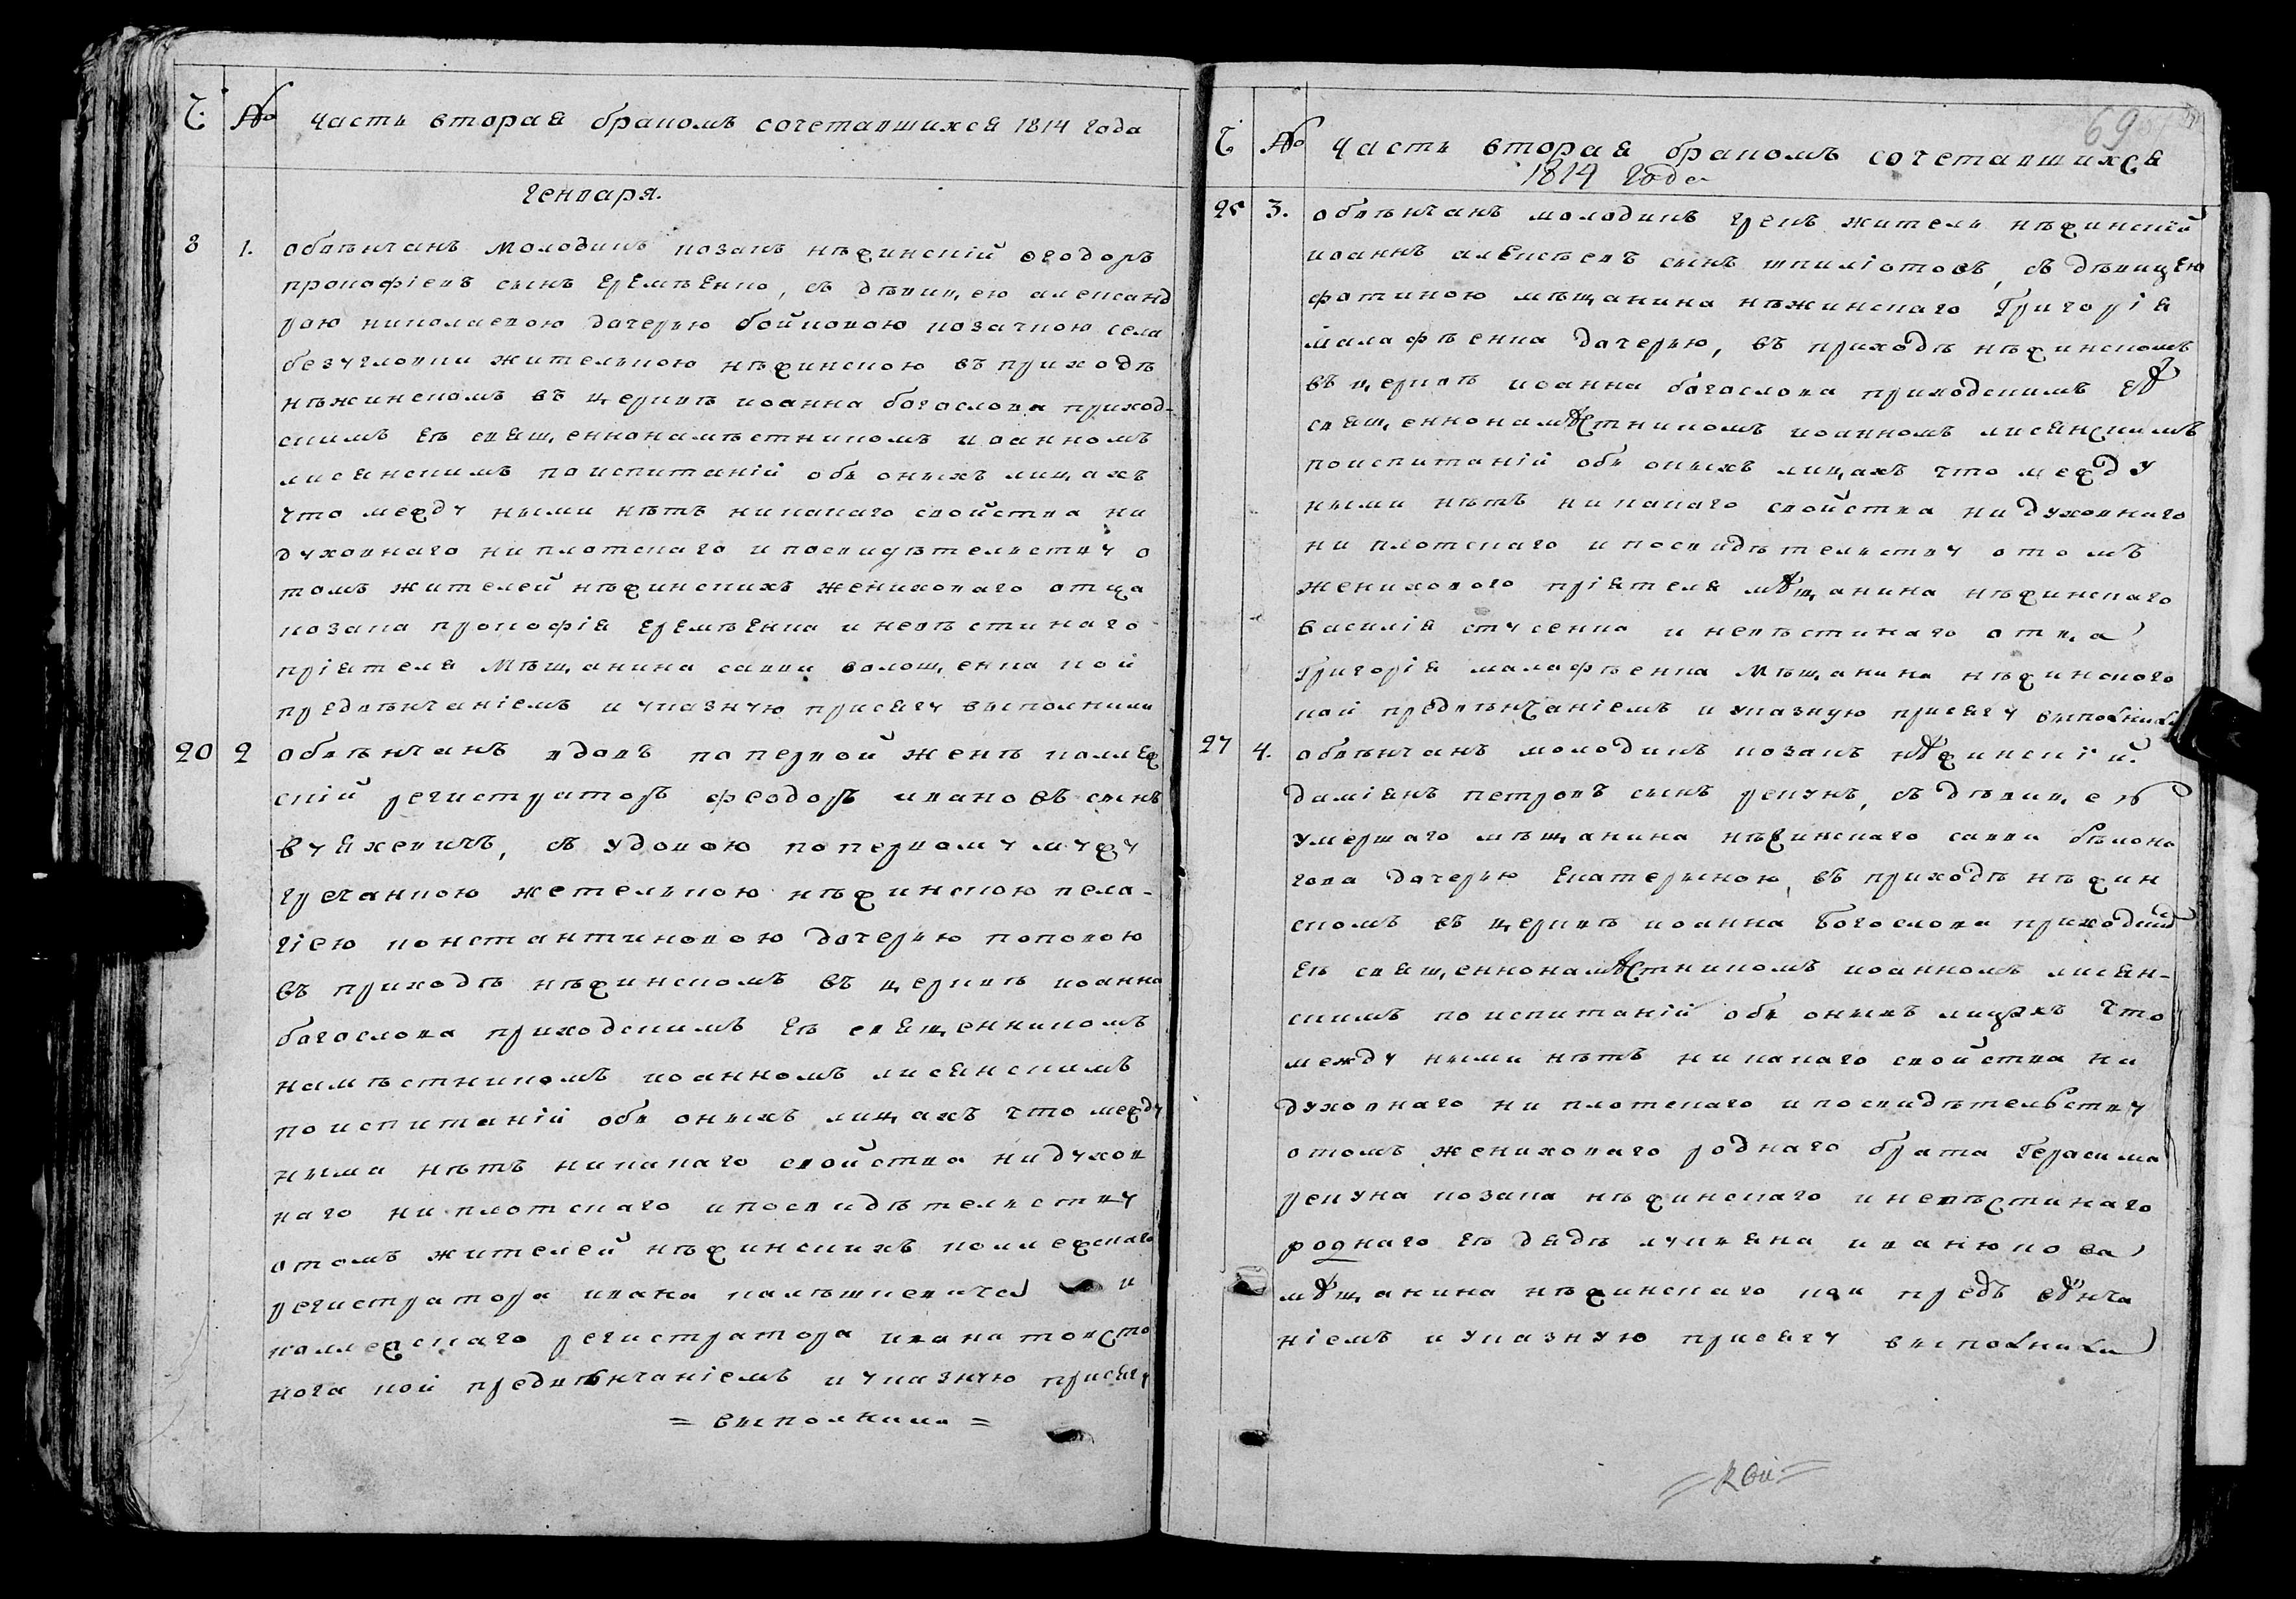 Ч. № часть вторая бракомъ сочетавшихся 1814 года
генваря.
8 1. обвѣнчанъ молодикъ козакъ нѣжинскій ѳеодоръ
прокофіевъ сынъ еремѣенко, съ дѣвицею александ
рою николаевою дочерью бойковою козачкою села
безугловки жителькою нѣжинскою въ приходѣ
нѣжинскомъ въ церквѣ иоанна богослова приход-
скимъ еѣ священнонамѣстникомъ иоанномъ
лисянскимъ по испитаній объ оныхъ лицахъ
что между ными нѣтъ никакаго свойства ни
духовнаго ни плотскаго и посвидѣтельству о
томъ жителей нѣжинскихъ жениховаго отца
козака прокофія еремѣенка и невѣстинаго
пріятеля мѣщанина савви волощенка кой
предвѣнчаніемъ и указную присягу выполнили
20 2 обвѣнчанъ вдовъ по первой женѣ коллеж
скій регистраторъ феодоръ ивановъ сынъ
вуяхевичъ, съ удовою по первому мужу
гречанкою жетелькою нѣжинскою пела-
гіею константиновою дочерью поповою
въ приходѣ нѣжинскомъ въ церквѣ иоанна
богослова приходскимъ еѣ священникомъ
намѣстникомъ иоанномъ лисянскимъ
по испитаній объ оныхъ лицахъ что между
ными нѣтъ никакаго свойства ни духов
наго ни плотскаго и посвидѣтельству
отомъ жителей нѣжинскихъ коллежскаго
регистратора ивана и
коллежскаго регистратора ивана товсто
нога кой предвѣнчаніемъ и указную присягу
= выполнили =
69
Ч № часть вторая бракомъ сочетавшихся
1814 года
25 3. обвѣнчанъ молодикъ грекъ житель нѣжинскій
иоаннъ алексѣевъ сынъ шпиліотовъ, съ дѣвицею
фотиною мѣщанина нѣжинскаго Григорія
малафѣенка дочерью, въ приходѣ нѣжинскомъ
въ церквѣ иоанна богослова приходскимъ еѣ
священнонамѣстникомъ иоанномъ лисянскимъ
поиспитаній объ оныхъ лицахъ что между
ными нѣтъ никакаго свойства ни духовнаго
ни плотскаго и посвидѣтельству отомъ
женихового пріятеля мѣщанина нѣжинскаго
василія стусенка и невѣстинаго отца
Григорія малафѣенка мѣщанина нѣжинского
кой предвѣнчаніемъ и указную присягу выполнили
27 4. обвѣнчанъ молодикъ козакъ нѣжинскій.
даміянъ петровъ сынъ рекунъ, съ дѣвицею
умершаго мѣщанина нѣжинскаго савви бѣлоно
гова дочерью екатериною, въ приходѣ нѣжин
скомъ въ церквѣ иоанна богослова приходский
еѣ священнонамѣстникомъ иоанномъ лисян-
скимъ по испитаній объ оныхъ лицахъ что
между ными нѣтъ никакаго свойства ни
духовнаго ни плотскаго и посвидѣтельству
отомъ жениховаго роднаго брата Герасима
рекуна козака нѣжинскаго и невѣстинаго
роднаго еѣ дядѣ лукяна иванюкова
мѣщанина нѣжинскаго кои предъ вѣнча
ніемъ и указную присягу выполнили